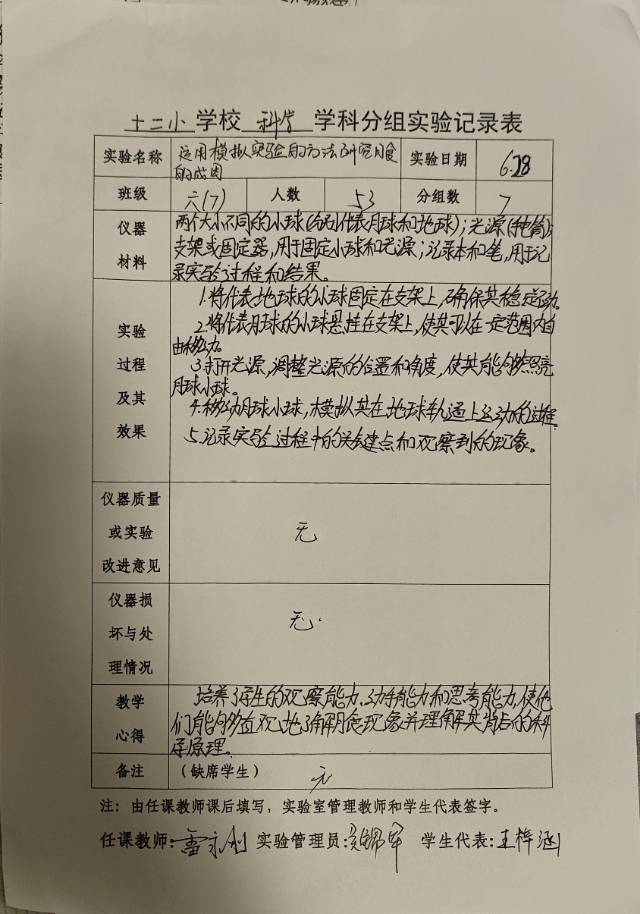 十二小 学校 科学 学科分组实验记录表
实验名称 运用模拟实验的方法研究月食的成因 实验日期 6.28
班级 六(7) 人数 53 分组数 7
仪器材料 两个大小不同的小球(分别代表月球和地球);光源(手电筒);
支架或固定器,用于固定小球和光源;记录本和笔,用于记
录实验过程和结果。
实验过程及其效果
1.将代表地球的小球固定在支架上,确保其稳定不动。
2.将代表月球的小球悬挂在支架上,使其可以在一定范围内自
由移动。
3.打开光源,调整光源的位置和角度,使其能够照亮
月球小球。
4.移动月球小球,模拟其在地球轨道上运动的过程
5.记录实验过程中的关键点和观察到的现象。
仪器质量
或实验 无
改进意见
仪器损
坏与处 无.
理情况
教学心得 培养了学生的观察能力、动手能力和思考能力,使他
们能够直观地了解月食现象并理解其背后的科
学原理。
备注 (缺席学生) 无
注:由任课教师课后填写,实验室管理教师和学生代表签字。
任课教师: 实验管理员: 学生代表:王梓涵